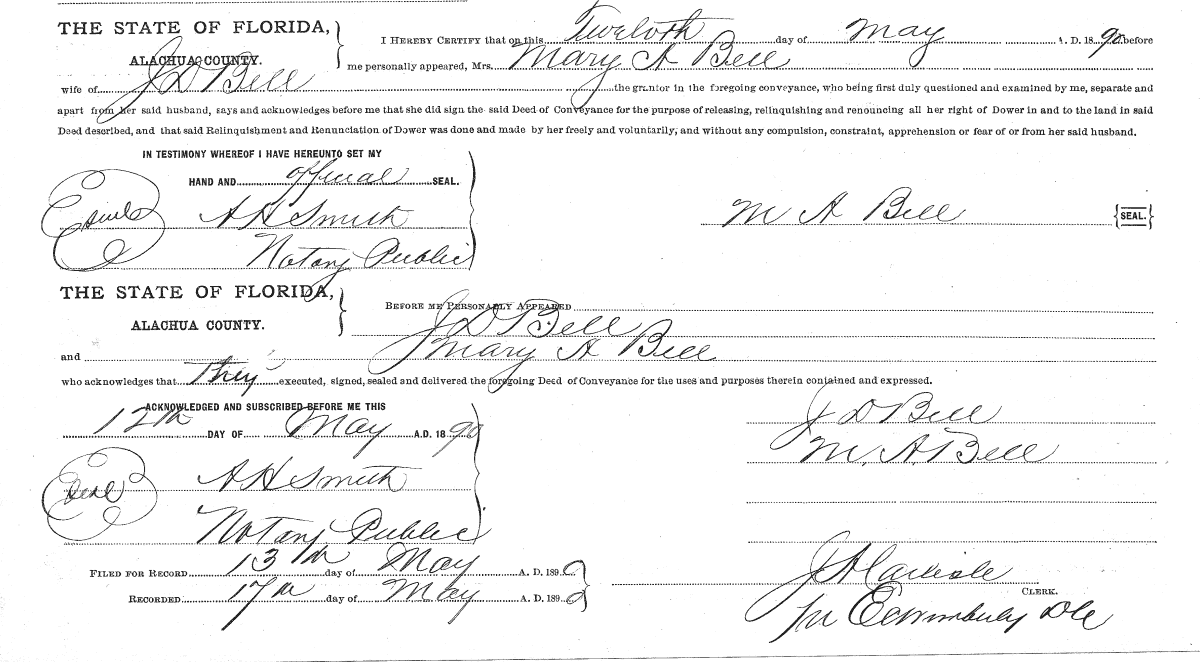 THE STATE OF FLORIDA,
ALACHUA COUNTY.
I HEREBY CERTIFY that on this Twelvth day of May A. D. 1890 before
me personally appeared, Mrs. Mary A Bell
wife of J D Bell the grantor in the foregoing conveyance, who being first duly questioned and examined by me, separate and
apart from her said husband, says and acknowledges before me that she did sign the said Deed of Conveyance for the purpose of releasing, relinquishing and renouncing all her right of Dower in and to the land in said
Deed described, and that said Relinquishment and Renunciation of Dower was done and made by her freely and voluntarily, and without any compulsion, constraint, apprehension or fear of or from her said husband.
IN TESTIMONY WHEREOF I HAVE HEREUNTO SET MY
HAND AND official SEAL.
Seal A H Smith
M A Bell {SEAL.}
Notary Public
THE STATE OF FLORIDA,
ALACHUA COUNTY.
BEFORE ME PERSONALLY APPEARED
J D Bell
and Mary A Bell
who acknowledges that They executed, signed, sealed and delivered the foregoing Deed of Conveyance for the uses and purposes therein contained and expressed.
ACKNOWLEDGED AND SUBSCRIBED BEFORE ME THIS
12th DAY OF May A.D. 1890
J D Bell
M. A. Bell
Seal A H Smith
Notary Public
FILED FOR RECORD 13th day of May A. D. 1890
RECORDED 17th day of May A. D. 1890
J A Carlisle
CLERK.